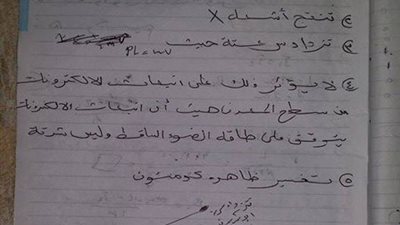 ② تنتج أشعه X
③ تزداد سرعته حيث PL = mv
④ لا يؤثر ذلك على انبعاث الالكترونات
من سطح المعدن حيث أن انبعاث الالكترونات
يتوقف على طاقة الضوء الساقط وليس شدته
⑤ تفسير ظاهره كومتون
فوتون